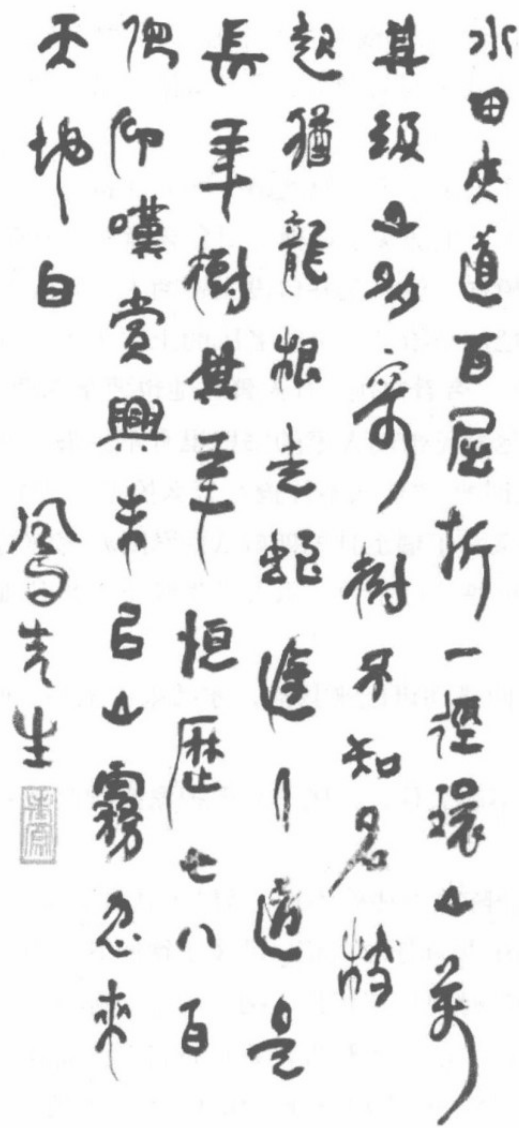 水田夾道百屈折一徑環山萬
其級山多奇樹不知名
起猶龍根走蛇道是
長年樹其年恒歷七八百
俯仰嘆賞興未已山霧忽來
天地白
先生